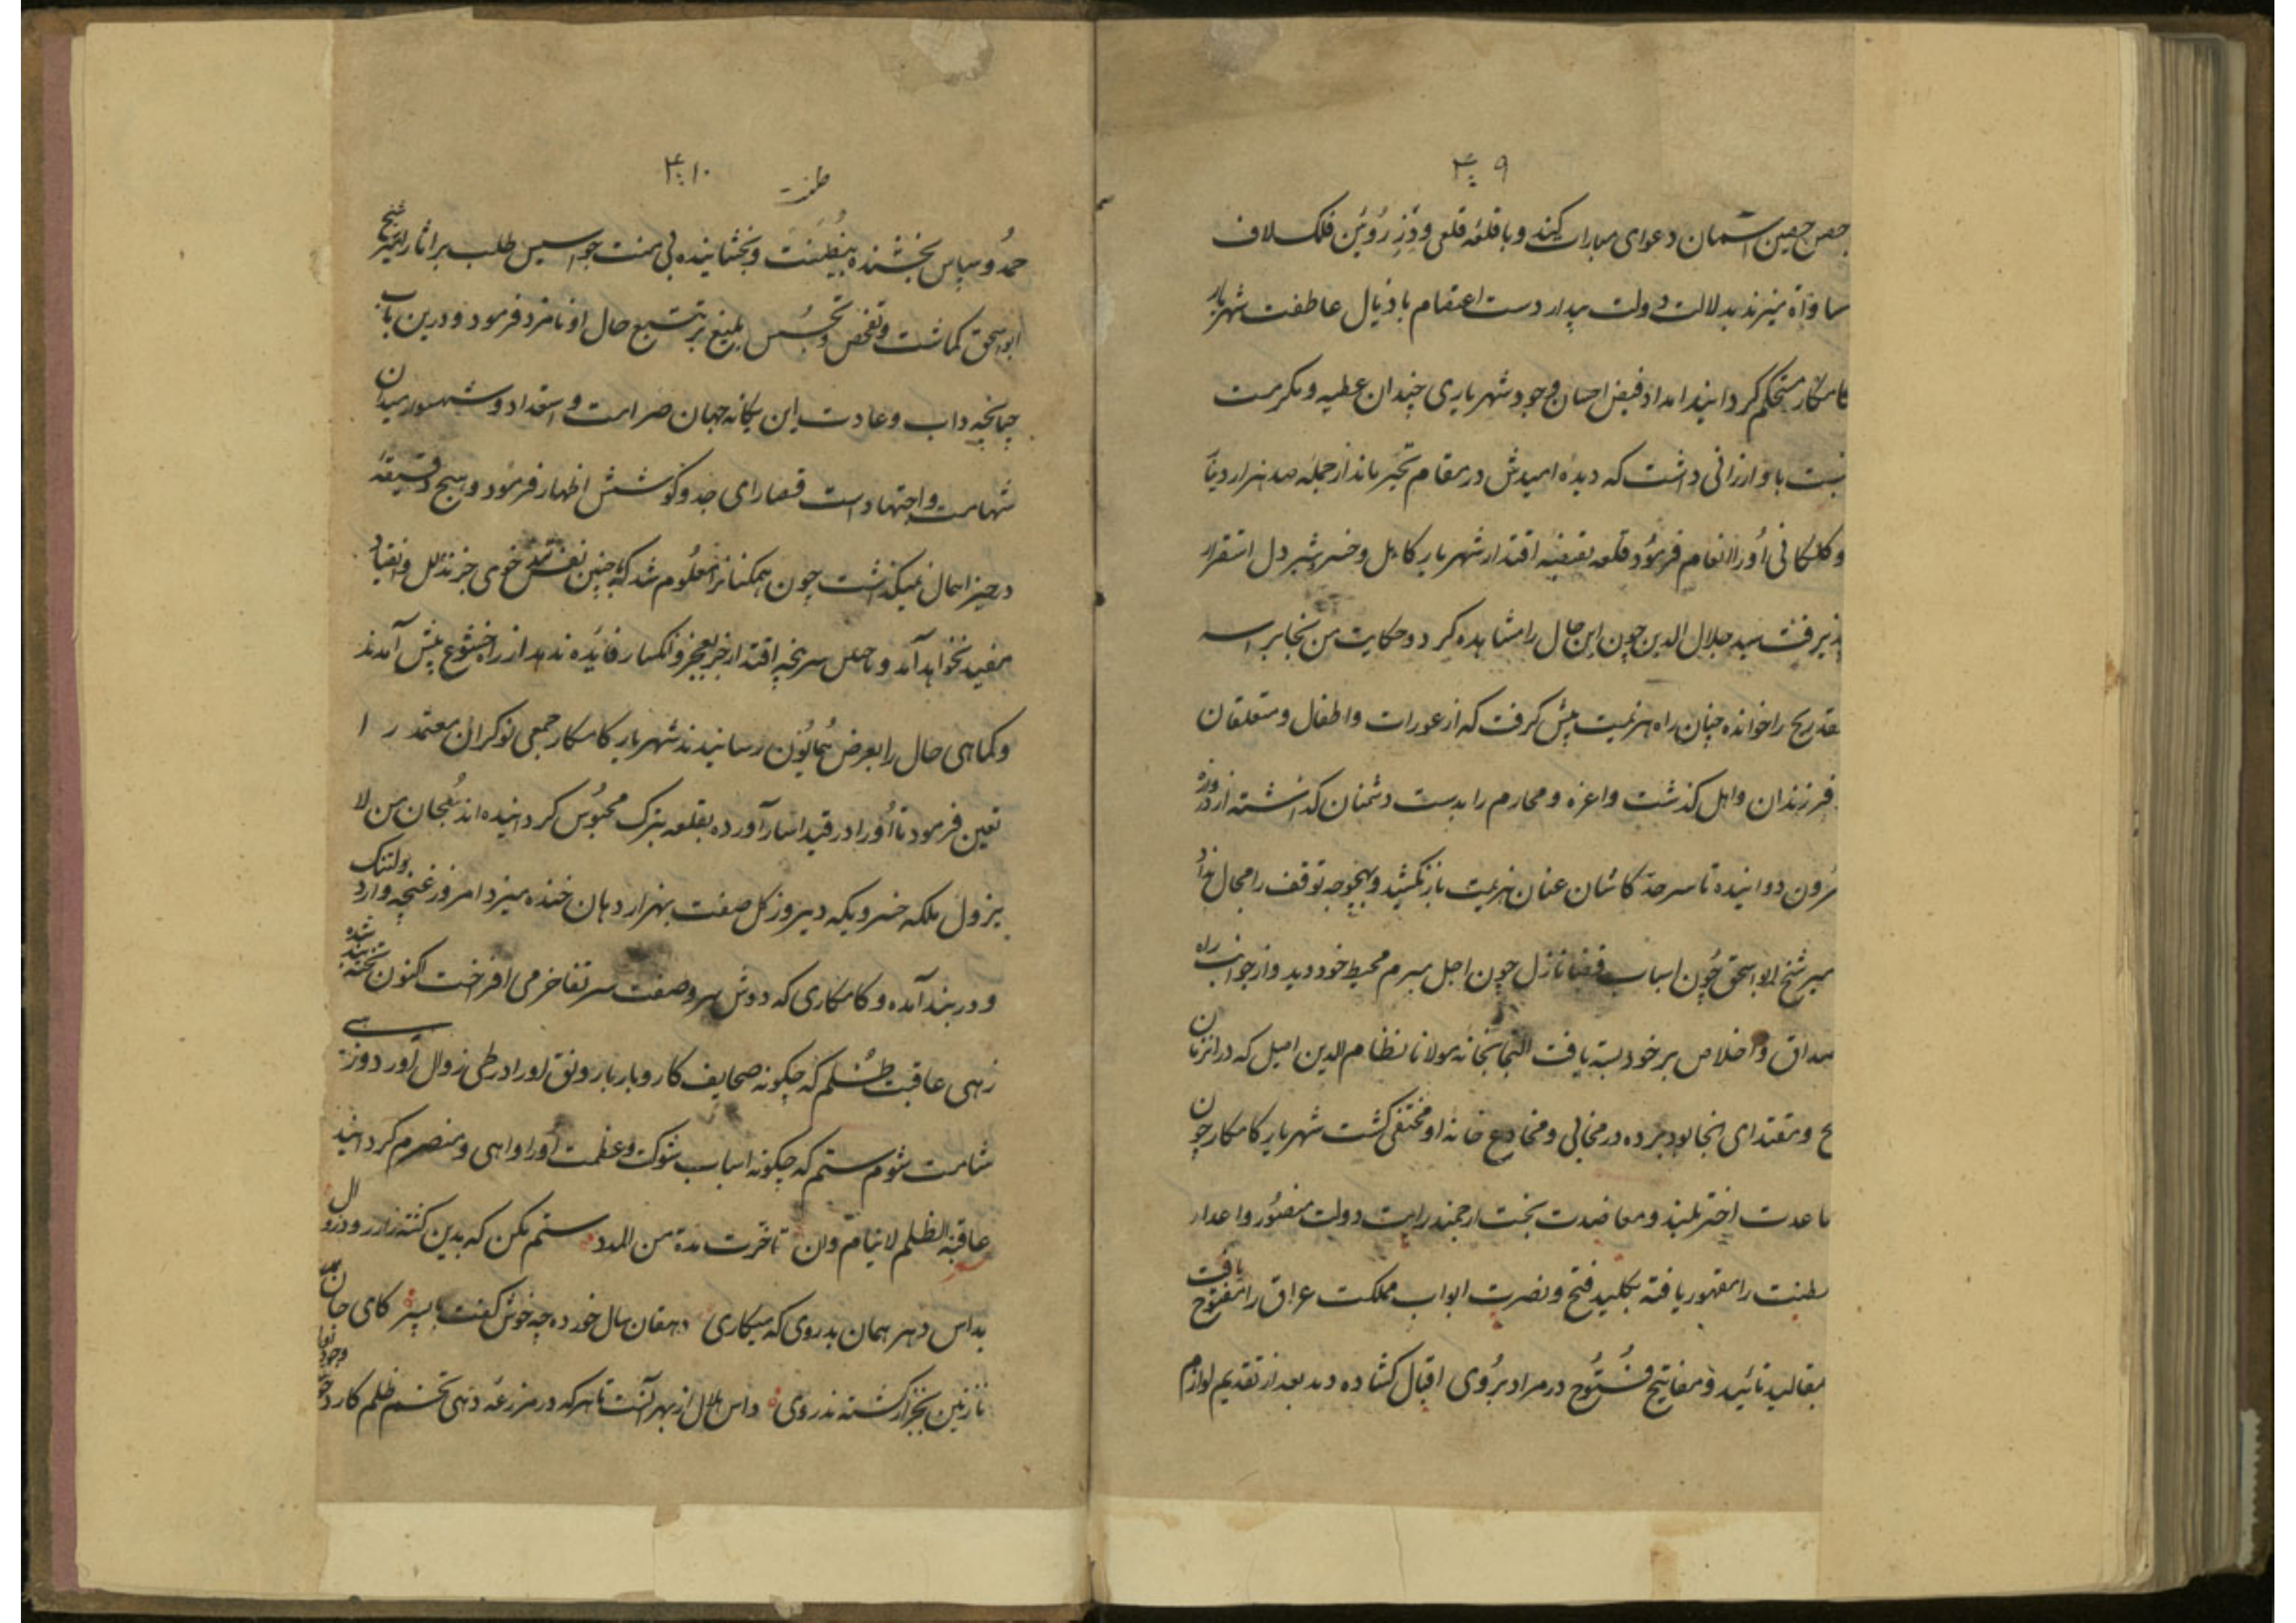 ۹
حصن حصین آسمان دعوای مبارات کنند و با قلعه قلعی و دز رُوئین فلک لاف
مساواة میزند بدلالت دولت بیدار دست اعتصام باذیال عاطفت شهریار
کامکار مستحکم گردانیند امداد فیض احسان و جود شهریاری چندان عطیه و مکرمت
نسبت باو ارزانی داشت که دیده امیدش در مقام تحیّر ماند از جمله صد هزار دینا
و کلکانی اُو را انعام فرمُود قلعه بقبضه اقتدار شهریار کامل و خسرو شیر دل استقرار
پذیرفت سید جلال الدین چون این حال را مشاهده کرد و حکایت من نجا براسه
فقد ربح را خوانده چنان راه هزیمت پیش کرفت که از عورات و اطفال و متعلقان
فرزندان و اهل کذشت و اعزه و محارم را بدست دشمنان کذاشته از دروازه
بیرون دوانیده تا سر حدّ کاشان عنان هزیمت باز نکشید و بهیچوجه توقف را مجال نداد
میر شیخ ابو اسحق چُون اسباب قضا نازل چون اجل مبرم محیط خود دید و از جوانب راه
صداق و اخلاص بر خود بسته یافت التجا بخانه مولانا نظام الدین اصیل که در انزمان
و مقتدای انجا بود برده در مخابی و مخادع خانه او مختفی کشت شهریار کامکار چون
مساعدت اختر بلند و معاضدت بخت ارجمند رایت دولت منصُور و اعدار
سلطنت را مقهور یافته بکلید فتح و نصرت ابواب مملکت عراق را مفتوح یافت
بمقالید تائید و مفاتیح فُتُوح در مراد برُوی اقبال کشاده دید بعد از تقدیم لوازم
۱۰
حمدُ و سپاس بخشنده بیضنّت و بخشاینده بی منت جواسیس طلب بر اثار امیر شیخ
ابو اسحق کماشت و تفحّص و تجسُّس بلیغ بر تتبع حال او نامزد فرمود و درین باب
چنانچه داب و عادت این یکانه جهان صرامت و استعداد و شهسوار میدان
شهامت و اجتهاد است قصارای جد و کوشش اظهار فرمُود و هیچ دقیقه
در حیز اهمال نمیکذاشت چون همکنانرا معلُوم شد که جز تذلل و انقیاد
مفید نخواهد آمد و با سر پنجه اقتدار جز بعجز و انکسار فایده ندهد از راه خشوع پیش آمدند
و کماهی حال را بعرض هُمایُون رسانیدند شهریار کامکار جمعی نوکران معتمد را
تعین فرمود تا اُو را در قید اسار آورده بقلعه بترک محبُوس کردانیده اند سُبحان من لا
یزول ملکه خسرویکه دیروز کل صفت بهزار دهان خنده میزد امروز غنچه وار دلتنک
و در بند آمده و کامکاری که دوش سرو صفت سر تفاخر می افراخت اکنون تخته بند شده
زهی عاقبت ظُلم که چکونه صحایف کار و بار با رونق او را در طی زوال آورد و زهی
شامت شوم ستم که چکونه اسباب شوکت و عظمت اُو را واهی و منصرم کردانید
عاقبة الظلم لا تنام و ان تاخرت مدة من المدد ستم مکن که بدین کشته زار رود زوال
بداس دهر همان بدروی که میکاری دهقان سال خورده چه خوش کفت با پسر کای جان
نازنین بجز از کشته ندروی داس هلال از بهر آنست تا هر که در مزرعه دهی تخم ظلم کارد